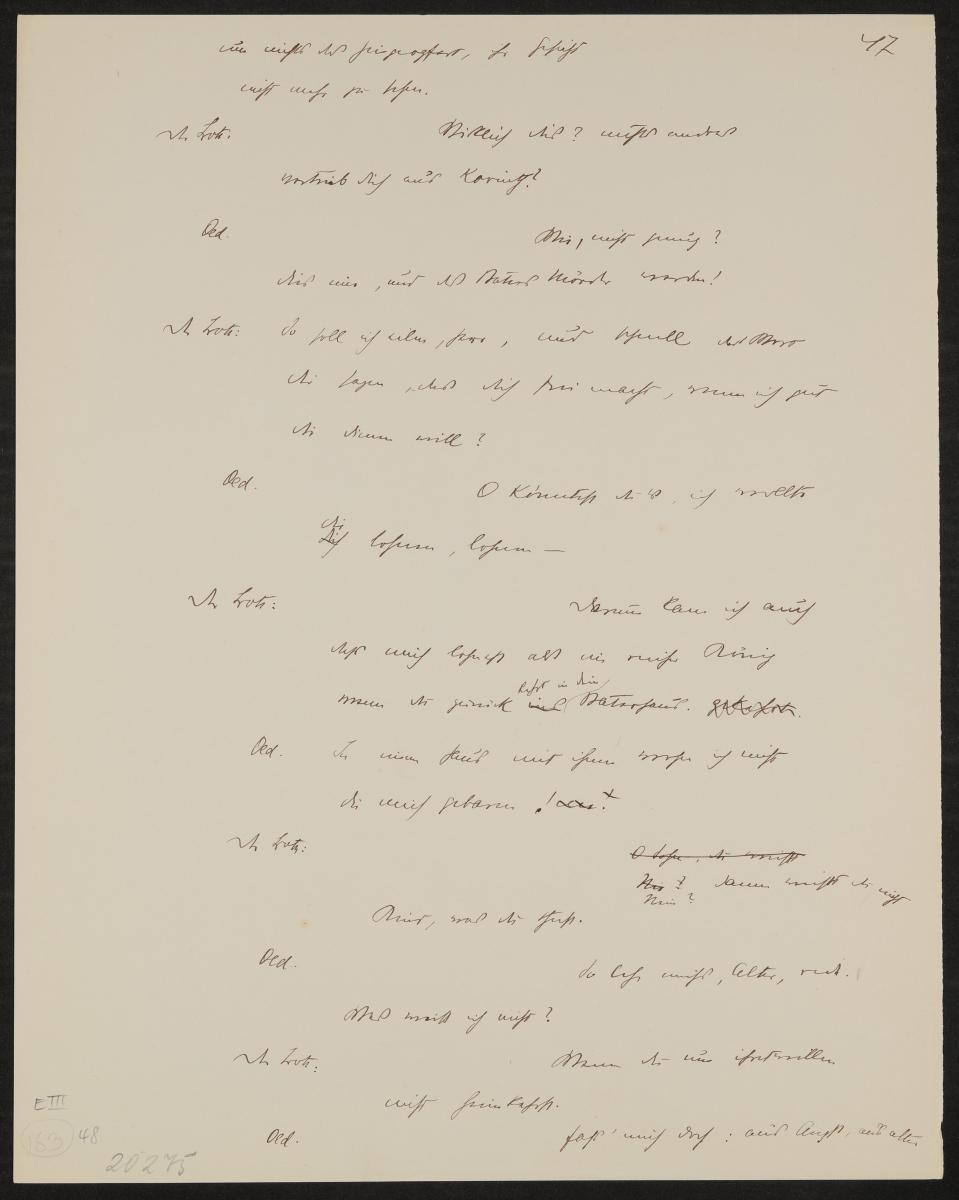 47
um nicht des
nicht mehr zu sehen.
Der Bote. Wirklich dies? nichts andres
vertrieb dich aus Korinth?
Oed. Wie, nicht genug?
dies nur, und des Vaters Mörder werden!
Der Bote: So soll ich alles, Herr, und schnell das Wort
dir sagen, das dich frei macht, wenn ich gut
dir dienen will?
Oed. O könntest du's, ich wollte
dir
Dich lohnen, lohnen —
Der Bote: Darum kam ich auch
daß mich lohnest als ein reicher König
kehrst in dein
wenn du zurück ins Vaterhaus. gekehrt.
Oed. In einem Haus mit ihnen wohne ich nicht
die mich geboren!
Der Bote: O Sohn, du weißt
Nie? dann weißt du nicht
Nein?
Kind, was du thust.
Oed. So lehr mich's, Alter, red.
Was weiß ich nicht?
Der Bote: Wenn du um ihretwillen
nicht heimkehrst.
Oed. doch: aus Angst, aus alter
E III
183 48
20275